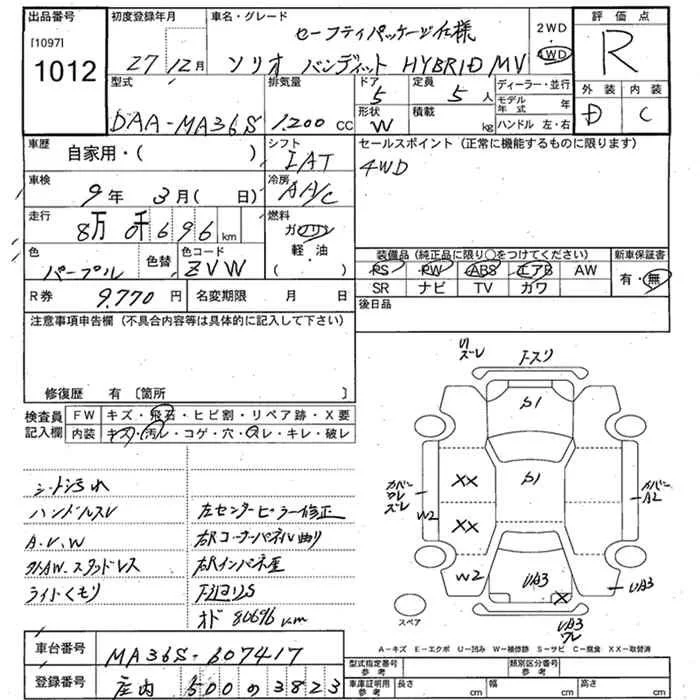 出品番号
[1097]
1012
初度登録年月
27 12月
車名・グレード
セーフティパッケージ仕様
ソリオ バンディット HYBRID MV
2WD
4WD
評価点
R
外装 内装
D C
型式
DAA-MA36S
排気量
1.200 cc
ドア
5
定員
5 人
形状
W
積載
kg
ディーラー・並行
モデル年式 年
ハンドル 左・右
車歴
自家用・( )
シフト
IAT
セールスポイント (正常に機能するものに限ります)
4WD
車検
9年 3月( 日)
冷房
AA/C
走行
8万 0千 6 9 6 km
燃料
ガソリン
軽・油
( )
色
パープル
色替
色コード
ZVW
装備品 (純正品に限り○をつけてください)
PS PW ABS エアB AW
SR ナビ TV カワ
新車保証書
有・無
R券
9.770 円
名変期限 月 日
後日品
注意事項申告欄 (不具合内容等は具体的に記入して下さい)
修復歴 有 〔箇所 〕
検査員記入欄
FW キズ・飛石・ヒビ割・リペア跡・X要
内装 キズ・汚レ・コゲ・穴・スレ・キレ・破レ
シート汚れ
ハンドルスレ
A.V.W
外AW.スタッドレス
ライトくもり
左センターピラー修正
右Rコーナーパネル曲り
右Rインパネ歪
下廻りS
オド 80696km
ズレ
S1
S1
カバー
ワレ
ズレ
W2
XX
XX
W2
カバー
A2
UA3
X
UA3
UA3
ワレ
スペア
A-キズ E-エクボ U-凹み W-補修跡 S-サビ C-腐食 XX-取替済
車台番号
MA36S-607417
登録番号
庄内 500 の 3823
型式指定番号 参考
類別区分番号 参考
車庫証明用 参考
長さ cm
幅 cm
高さ cm